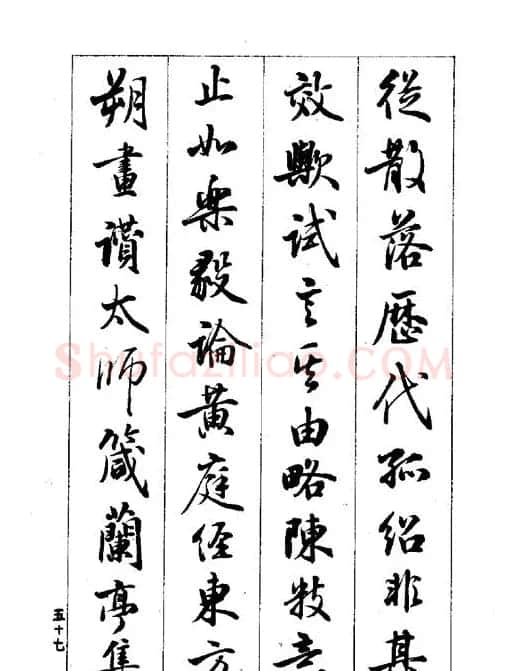 從散落歷代孤紹非其
效歟試言其由略陳數意
止如樂毅論黃庭經東方
朔畫讚太師箴蘭亭集
五十七
Shufaziliao.COM